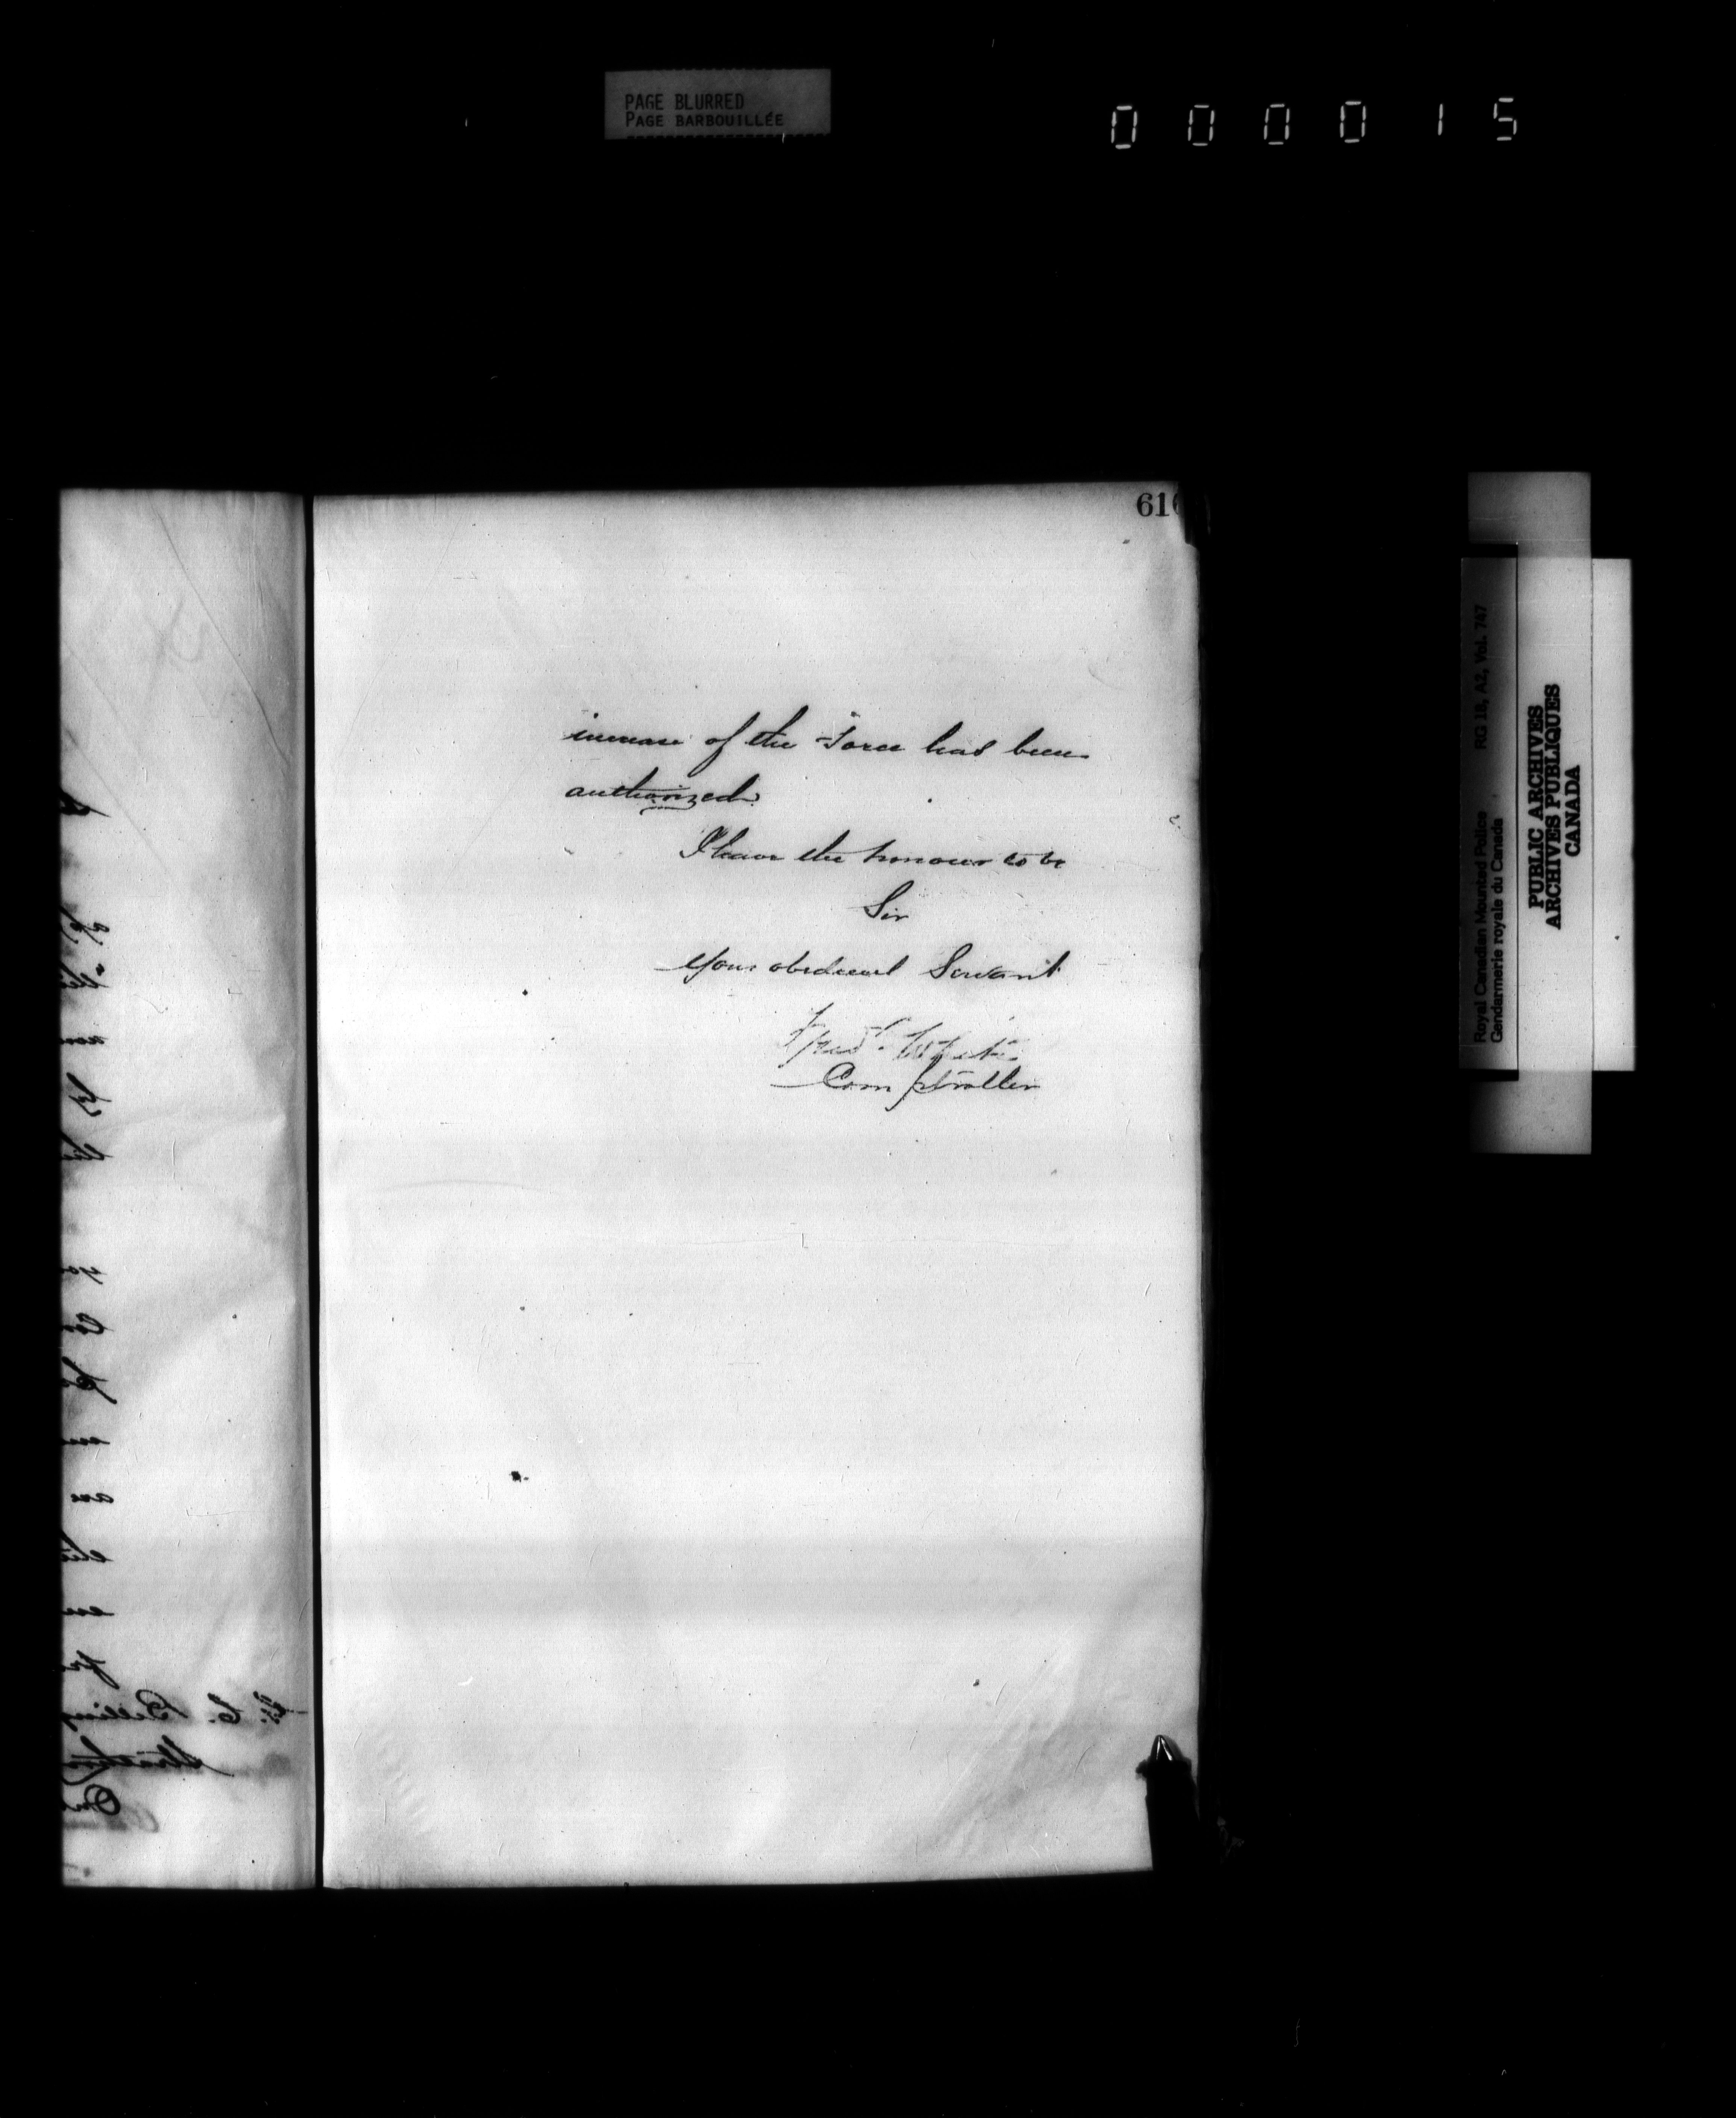 PAGE BLURRED
PAGE BARBOUILLÉE
000015
616
increase of the Force has been
authorized.
I have the honour to be
Sir
Your obedient Servant
Fred White
Comptroller
Royal Canadian Mounted Police RG 18, A2, Vol. 747
Gendarmerie royale du Canada
PUBLIC ARCHIVES
ARCHIVES PUBLIQUES
CANADA